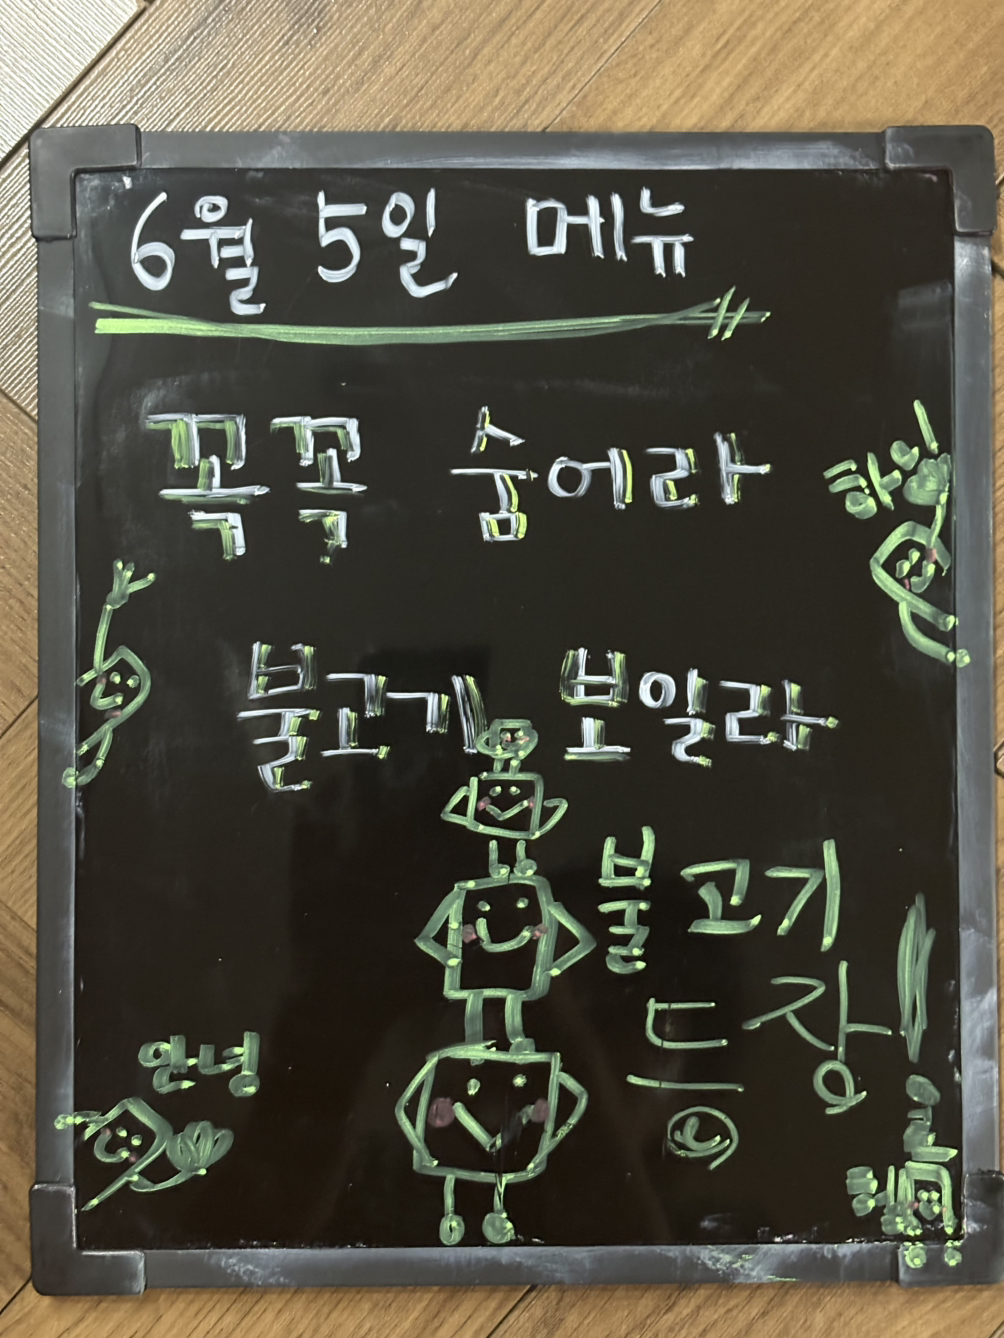 6월 5일 메뉴
꼭꼭 숨어라
불고기 보일라
불고기
등장!
안녕